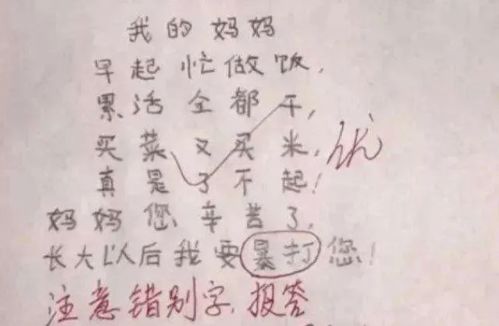 我的妈妈
早起忙做饭,
累活全都干,
买菜又买米,
真是了不起!
优
妈妈您辛苦了,
长大以后我要暴打您!
注意错别字,报答